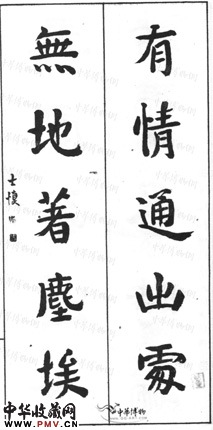 有情通出處
無地著塵埃
中華博物
中华收藏网
www.PMV.cn